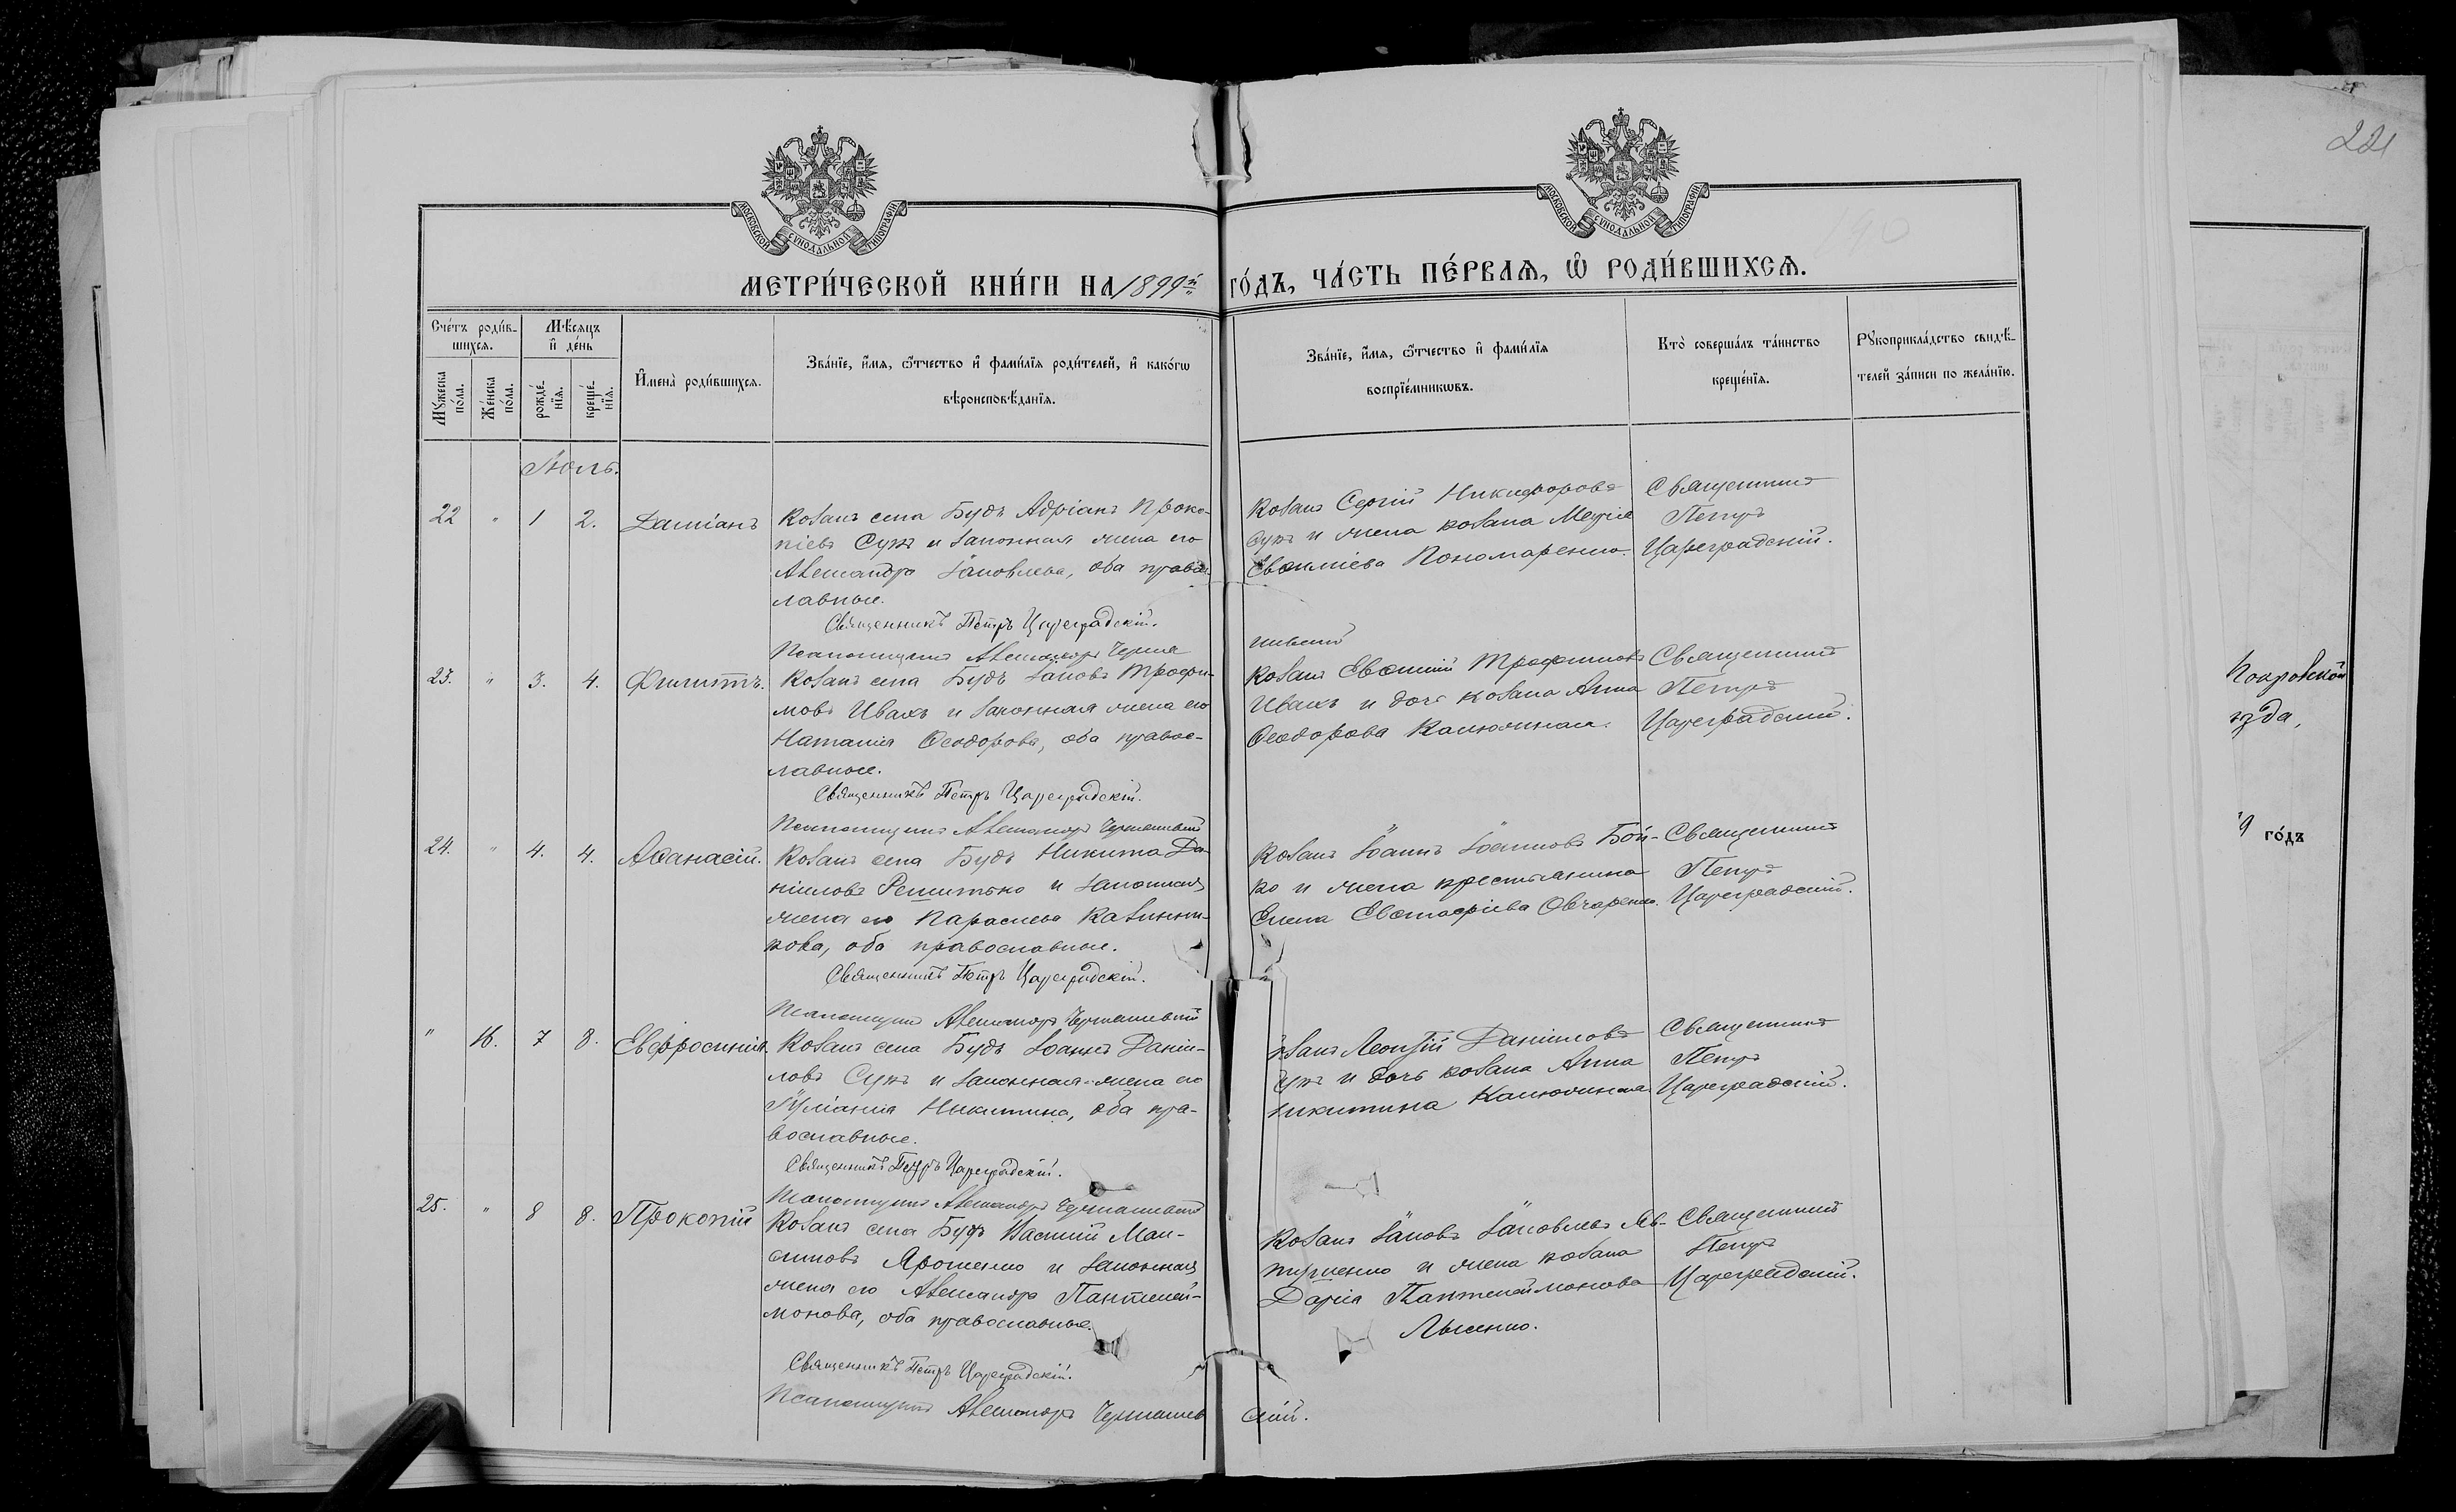 221
МОСКОВСКОЙ СУНОДАЛЬНОЙ ТИПОГРАФІИ
МОСКОВСКОЙ СУНОДАЛЬНОЙ ТИПОГРАФІИ
190
МЕТРИ́ЧЕСКОЙ КНИ́ГИ НА 1899й ГО́ДЪ, ЧА́СТЬ ПЕ́РВАѦ, Ѿ РОДИ́ВШИХСѦ.
Сче́тъ роди́в-
шихсѧ.
Мѣ́сѧцъ
и҆ де́нь
Му́жеска
по́ла.
Же́нска
по́ла.
рожде́-
нїѧ.
креще́-
нїѧ.
И҆мена̀ роди́вшихсѧ.
Зва́нїе, и҆́мѧ, ѻ҆́тчество и҆ фами́лїѧ роди́телей, и҆ како́гѡ
вѣроисповѣ́данїѧ.
Зва́нїе, и҆́мѧ, ѻ҆́тчество и҆ фами́лїѧ
воспрїе́мникѡвъ.
Кто̀ соверша́лъ та́инство
креще́нїѧ.
Рꙋкоприкла́дство свидѣ́-
телей за́писи по жела́нїю.
Іюль.
22 " 1 2. Даміанъ
Козакъ села Будъ Адріанъ Проко-
піевъ Сукъ и законная жена его
Александра Іаковлева, оба правос-
лавные.
Священникъ Петръ Цареградскій.
Псаломщикъ Александръ
Козакъ Сергій Никифоровъ
Сукъ и жена козака Марія
Евфиміева Пономаренко.
Священникъ
Петръ
Цареградскій.
23. " 3. 4. Филиппъ.
Козакъ села Будъ Іаковъ Трофи-
мовъ Ивахъ и законная жена его
Наталія Ѳеодорова, оба правос-
лавные.
Священникъ Петръ Цареградскій.
Псаломщикъ Александръ
Козакъ Евфимій Трофимовъ
Ивахъ и дочь козака Анна
Ѳеодорова
Священникъ
Петръ
Цареградскій.
24. " 4. 4. Аѳанасій.
Козакъ села Будъ Никита Да-
ніиловъ Решитько и законная
жена его Параскева Калинни-
кова, оба православные.
Священникъ Петръ Цареградскій.
Псаломщикъ Александръ
Козакъ Іоаннъ Іоанновъ Бой-
ко и жена крестьянина
Елена Евстафіева Овчаренко.
Священникъ
Петръ
Цареградскій.
" 16. 7 8. Евфросинія.
Козакъ села Будъ Іоаннъ Даніи-
ловъ Сукъ и законная жена его
Іуліанія Никитина, оба пра-
вославные.
Священникъ Петръ Цареградскій.
Псаломщикъ Александръ
Козакъ Леонтій Даніиловъ
Сукъ и дочь козака Анна
Никитина
Священникъ
Петръ
Цареградскій.
25. " 8 8. Прокопій
Козакъ села Будъ Василій Мак-
симовъ Ярошенко и законная
жена его Александра Пантелей-
монова, оба православные.
Священникъ Петръ Цареградскій.
Псаломщикъ Александръ
Козакъ Іаковъ Іаковлевъ Ев-
тушенко и жена козака
Дарія Пантелеймонова
Лысенко.
Священникъ
Петръ
Цареградскій.
скій.
Покровской
ѣзда,
9 го́дъ